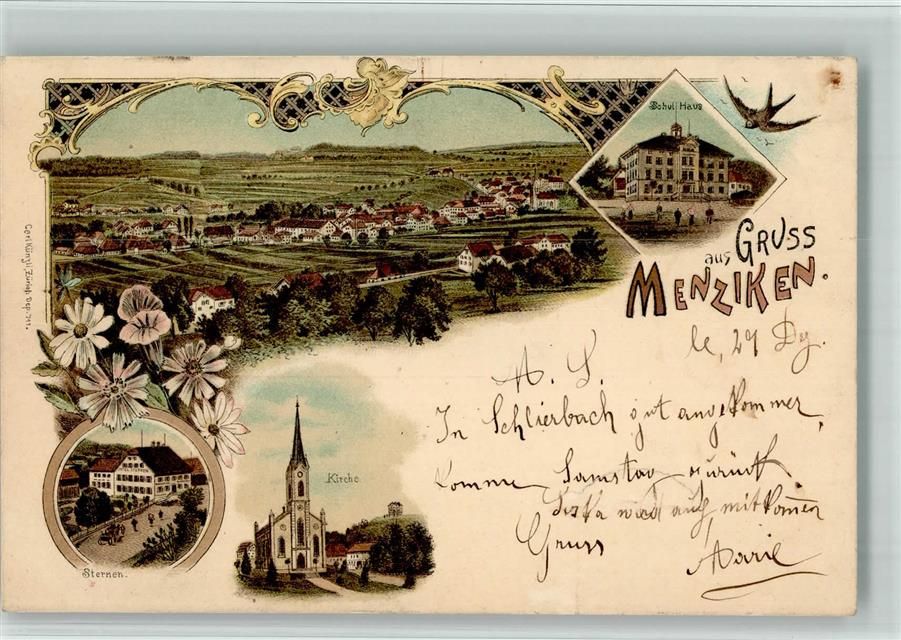 Schul Haus
Gruss
aus
Menziken.
Carl Künzli, Zürich Dep. 711.
le, 29 Dez.
A. S.
In Schlierbach gut angekommen
Komme Samstag zurück
wird auch mitkommen
Gruss
Marie
Kirche
Hotel Sternen
Sternen.